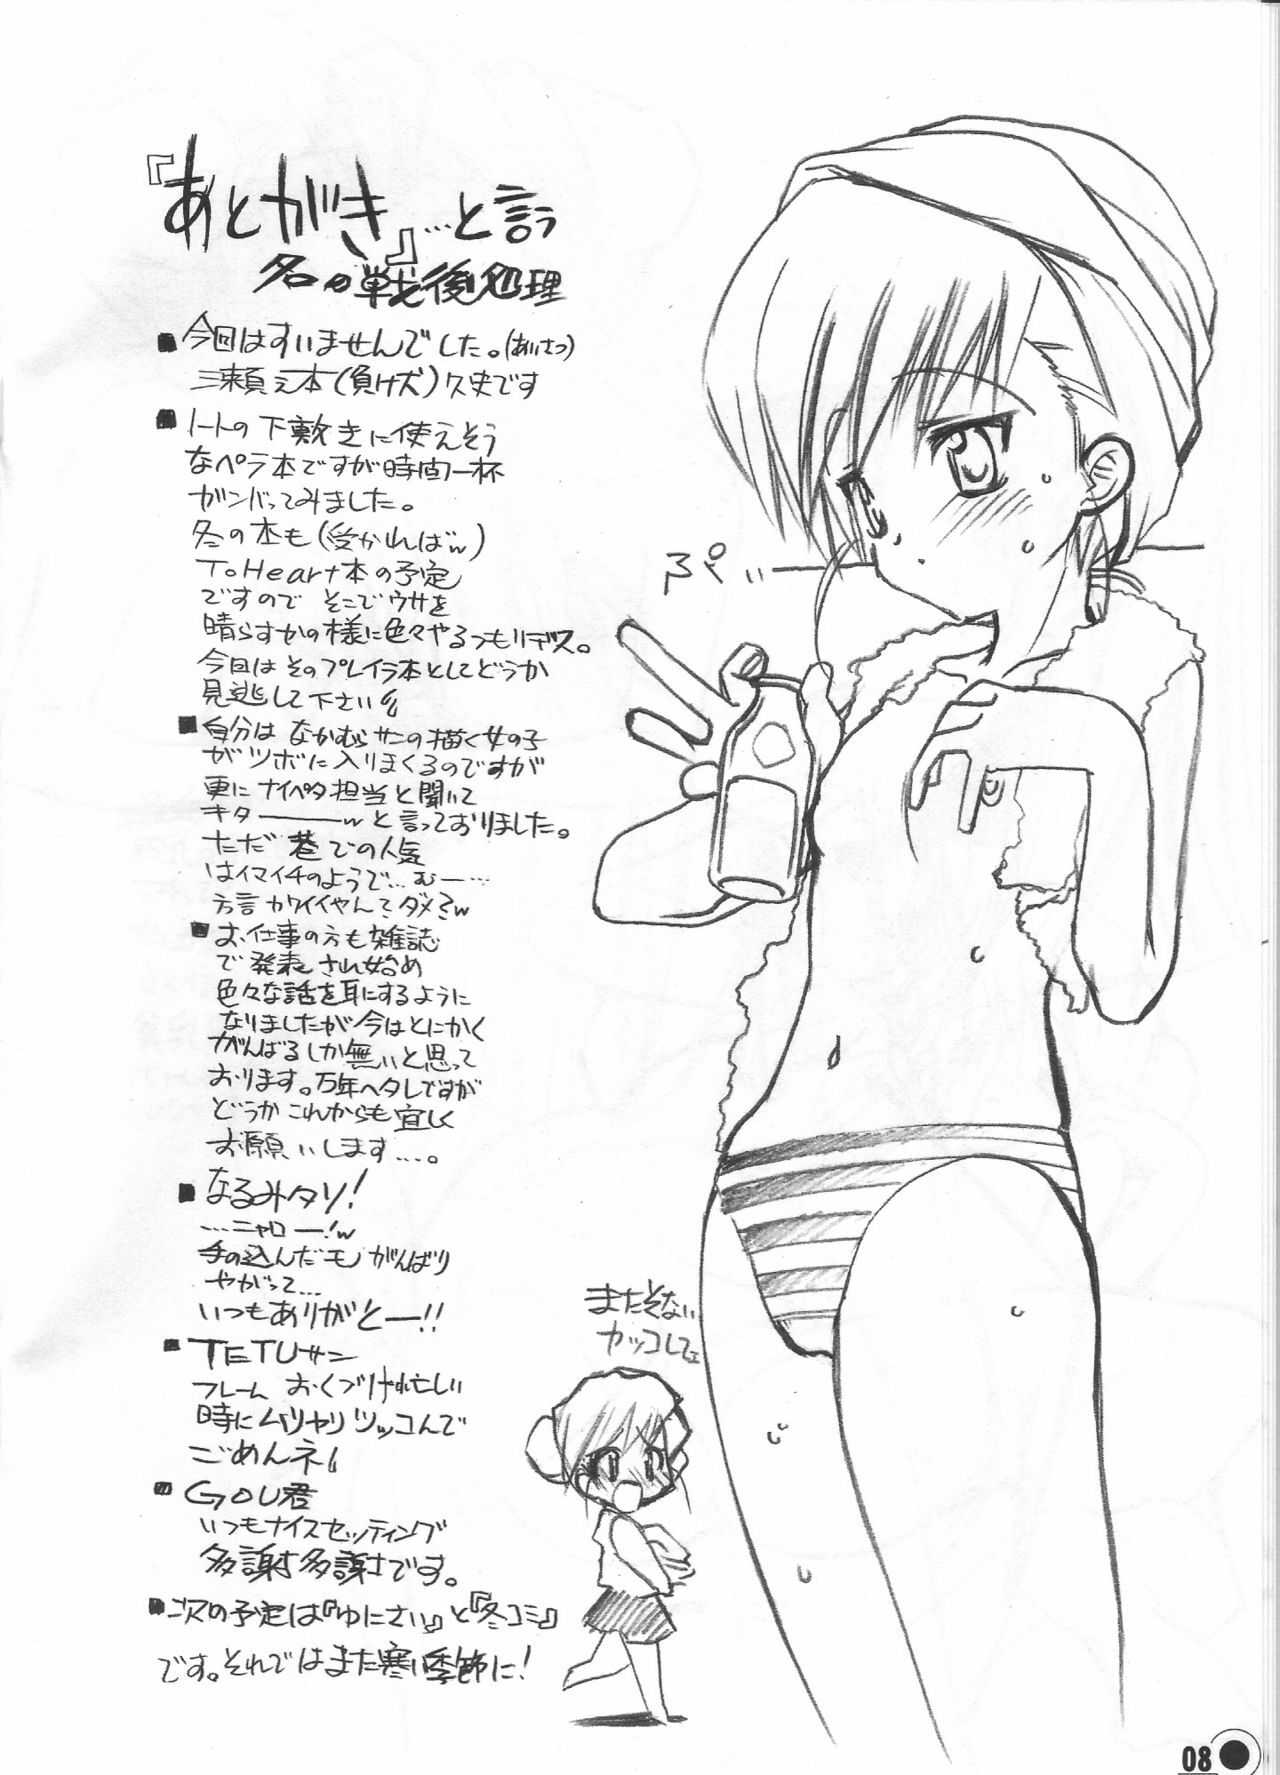 『あとがき』…と言う
名の戦後処理
■今回はすいませんでした。(あいさつ)
三瀬元本(負け犬)久史です
■ノートの下敷きに使えそう
なペラ本ですが時間一杯
ガンバってみました。
冬の本も(受かればw)
ToHeart本の予定
ですので そこでウサを
晴らすかの様に色々やるつもりデス。
今日はそのプレイラ本としてどうか
見逃して下さい
■自分は なかむらサンの描く女の子
がツボに入りまくるのですが
更に ナイペタ担当と聞いて
キター――wと言っておりました。
ただ 巷での人気
はイマイチのようで…むー…
方言 カワイイやん? ダメ?w
■お仕事の方も雑誌
で発表され始め
色々な話を耳にするように
なりましたが 今はとにかく
がんばるしか無いと思って
おります。万年ヘタレですが
どうか これからも宜しく
お願いします…。
■なるみタソ!
…ニャロー!w
手の込んだモノ がんばり
やがって…
いつもありがとー!!
■TETUサン
フレーム おくづけ忙しい
時にムリヤリ ツッコんで
ごめんネ
■GOU君
いつもナイスセッティング
多謝多謝です。
■次の予定は『ゆにさい』と『冬コミ』
です。それではまた寒い季節に!
ぷく〃
またそない
カッコしてェ
08